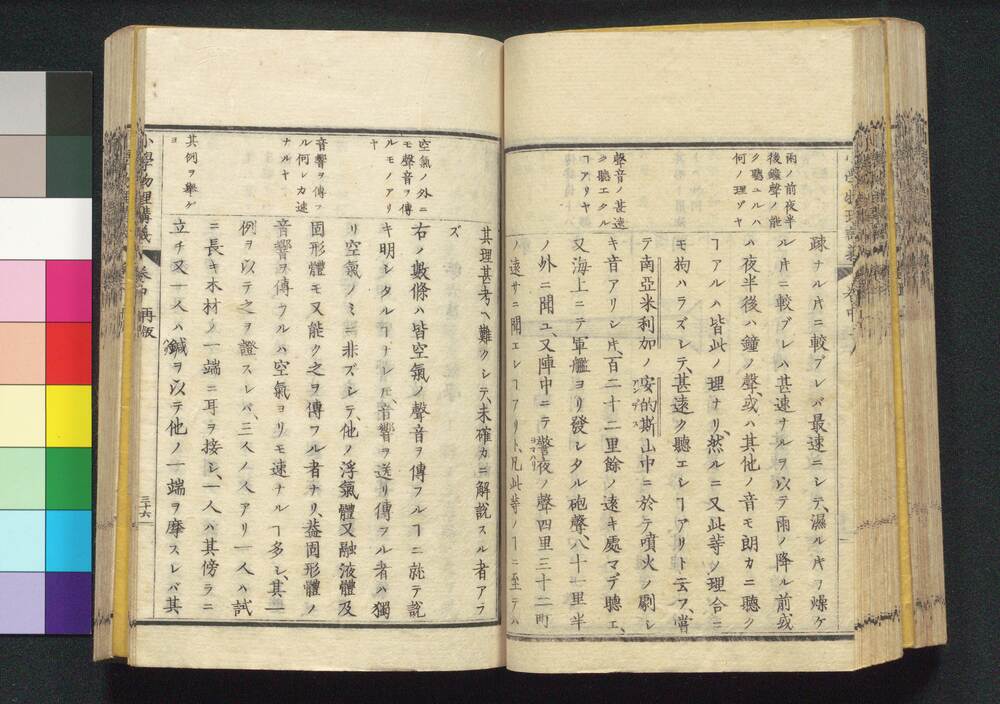 雨ノ前夜半
後鐘聲ノ能
ク聽ユルハ
何ノ理ゾヤ
聲音ノ甚遠
ク聽エタル
ヿアリヤ
疎ナル片ニ較ブレバ最速ニシテ、濕ル片ヲ燥ケ
ル片ニ較ブレハ甚速ナルヲ以テ雨ノ降ル前或
ハ夜半後ハ鐘ノ聲、或ハ其他ノ音モ朗カニ聽ク
ヿアルハ皆此ノ理ナリ、然ルニ又此等ノ理合ニ
モ拘ハラズシテ、甚遠ク聽エシヿアリト云フ、嘗
テ南亞米利加ノ安的斯山中ニ於テ噴火ノ劇シ
アンデス
キ音アリシ片、百二十二里餘ノ遠キ處マデ聽エ、
又海上ニテ軍艦ヨリ發シタル砲聲、八十一里半
ノ外ニ聞ユ、又陣中ニテ警夜ノ聲四里三十二町
ヨマハリ
ノ遠サニ聞エシヿアリト、凡此等ノヿニ至テハ
空氣ノ外ニ
モ聲音ヲ傳
ルモノアリ
ヤ
音響ヲ傳フ
ル何レカ速
ナルヤ
其例ヲ擧ゲ
ヨ
其理甚考ヘ難クシテ、未確カニ解説スル者アラ
ズ
右ノ數條ハ皆空氣ノ聲音ヲ傳フルヿニ就テ說
キ明シタルヿナレ𪜈、音響ヲ送リ傳フル者ハ獨
リ空氣ノミニ非ズシテ、他ノ浮氣體又融液體及
固形體モ又能ク之ヲ傳フル者ナリ、蓋固形體ノ
音響ヲ傳フルハ空氣ヨリモ速ナルヿ多シ、其一
例ヲ以テ之ヲ證スレバ、三人ノ人アリ一人ハ試
ニ長キ木材ノ一端ニ耳ヲ接シ、一人ハ其傍ラニ
立チ又一人ハ鍼ヲ以テ他ノ一端ヲ摩スレバ其
小學物理講義 卷中 再版
三十六